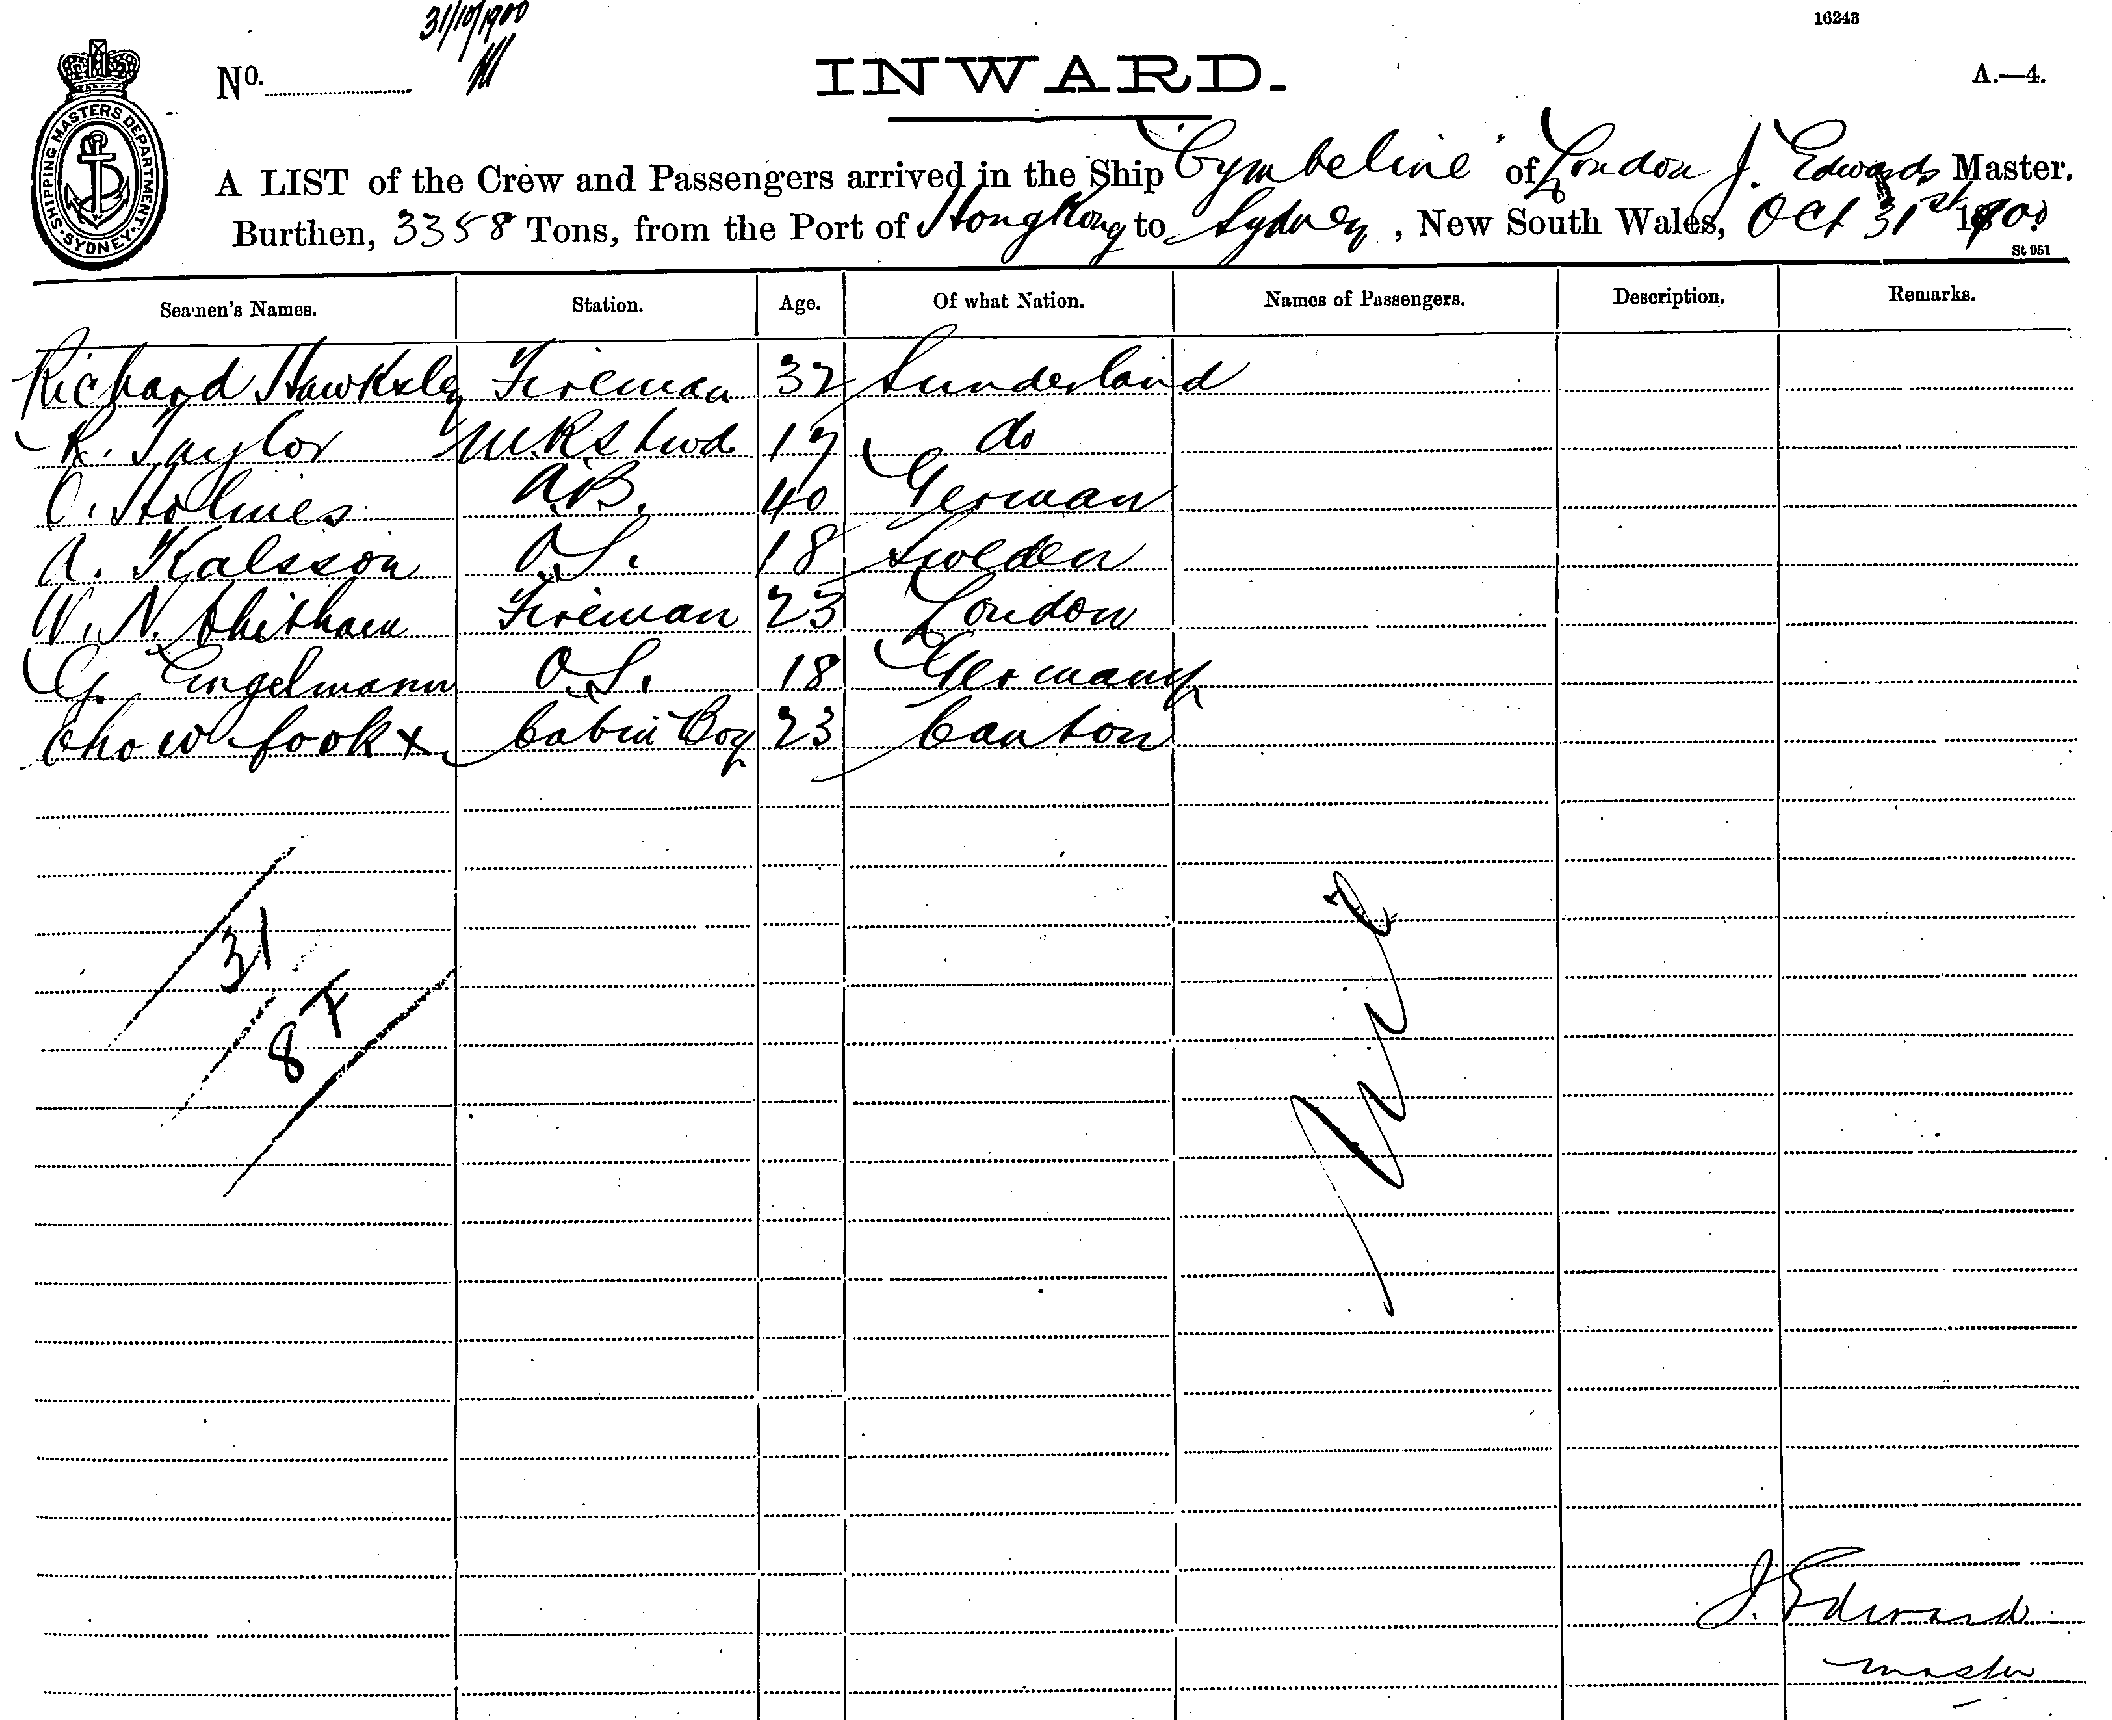 31/10/1900
16243
No.
INWARD.
A.—4.
SHIPPING MASTERS DEPARTMENT. SYDNEY.
A LIST of the Crew and Passengers arrived in the Ship "Cymbeline" of London J. Edwards Master.
Burthen, 3358 Tons, from the Port of Hong Kong to Sydney, New South Wales, Oct 31st 1900
St 951
Seamen's Names. Station. Age. Of what Nation. Names of Passengers. Description. Remarks.
Richard Hawksley Fireman 32 Sunderland
R. Taylor M.R. Stwd 17 do
C. Holmes A.B. 40 German
A. Kalsson O.S. 18 Sweden
W. N. Fireman 23 London
G. Engelmann O.S. 18 Germany
Chow fook x Cabin Boy 23 Canton
31
8 x
Nil
J. Edward
master